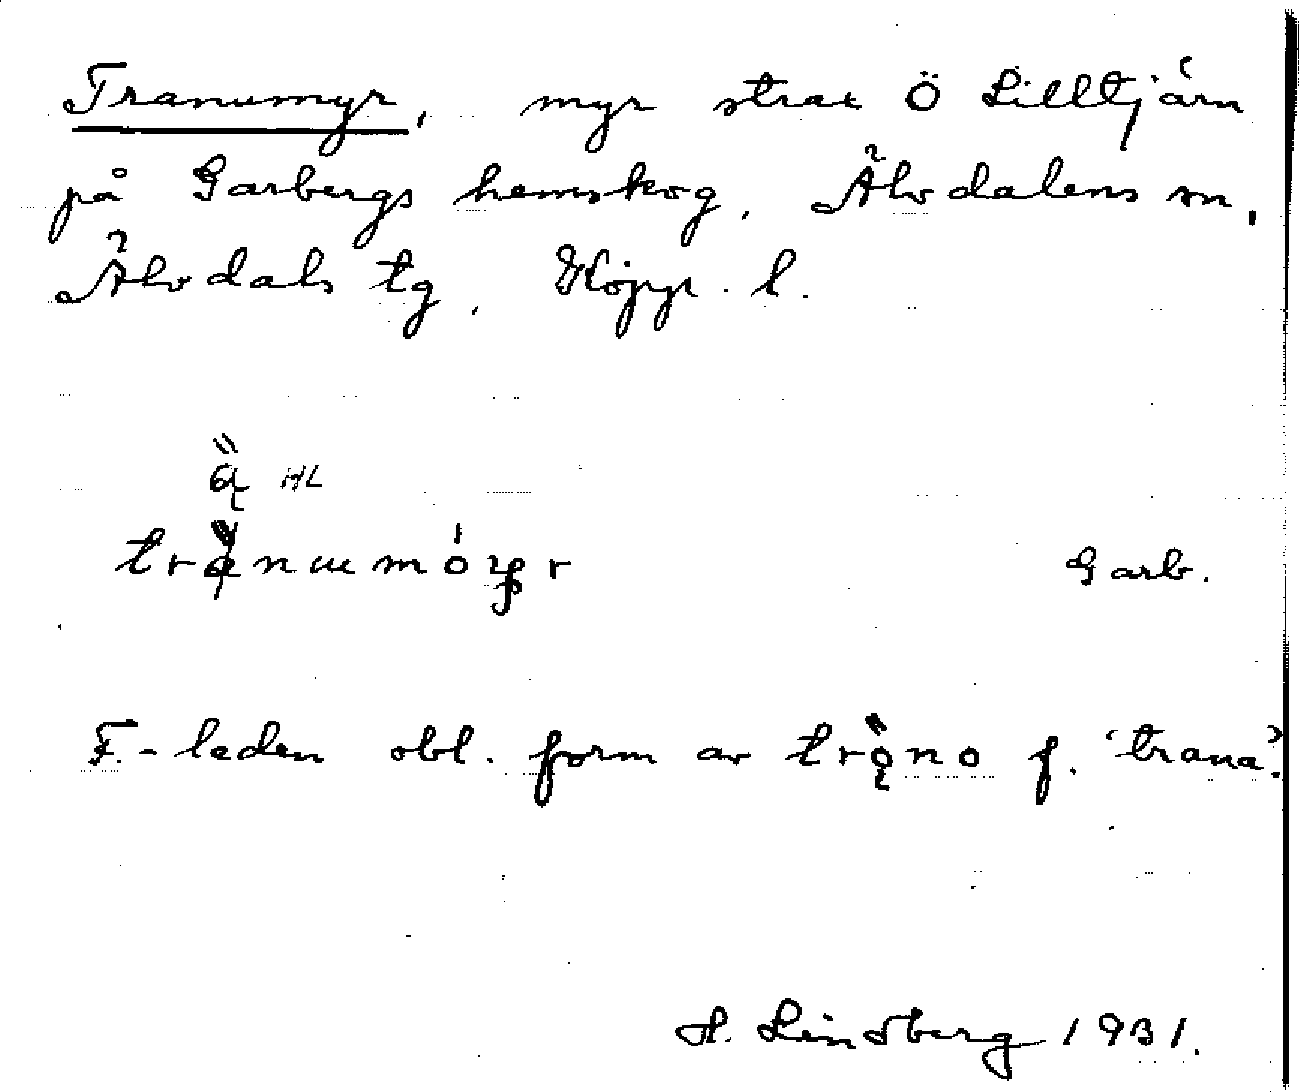 Tranumyr, myr strax Ö Lilltjärn
på Garbergs hemskog, Älvdalens sn,
Älvdals tg, Kopp. l.
ą̈ HL
Garb.
F.-leden obl. form av trǫ̈no f. 'trana'.
H. Lindberg 1931.